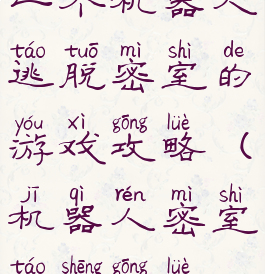 一个机器人
táo tuō mì shì de
逃脱密室的
yóu xì gōng lüè
游戏攻略（
jī qì rén mì shì
机器人密室
táo shēng gōng lüè